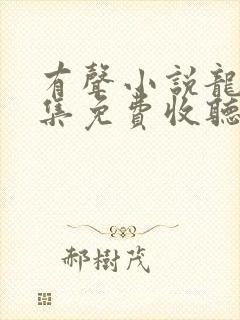 有聲小說龍
集免費收聽
郝樹茂